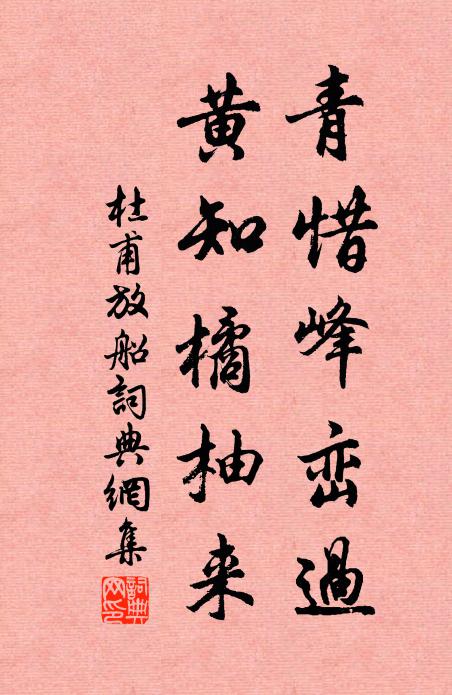 青惜峰峦過
黄知橘柚来
杜甫放船詞典網集
詞典網印